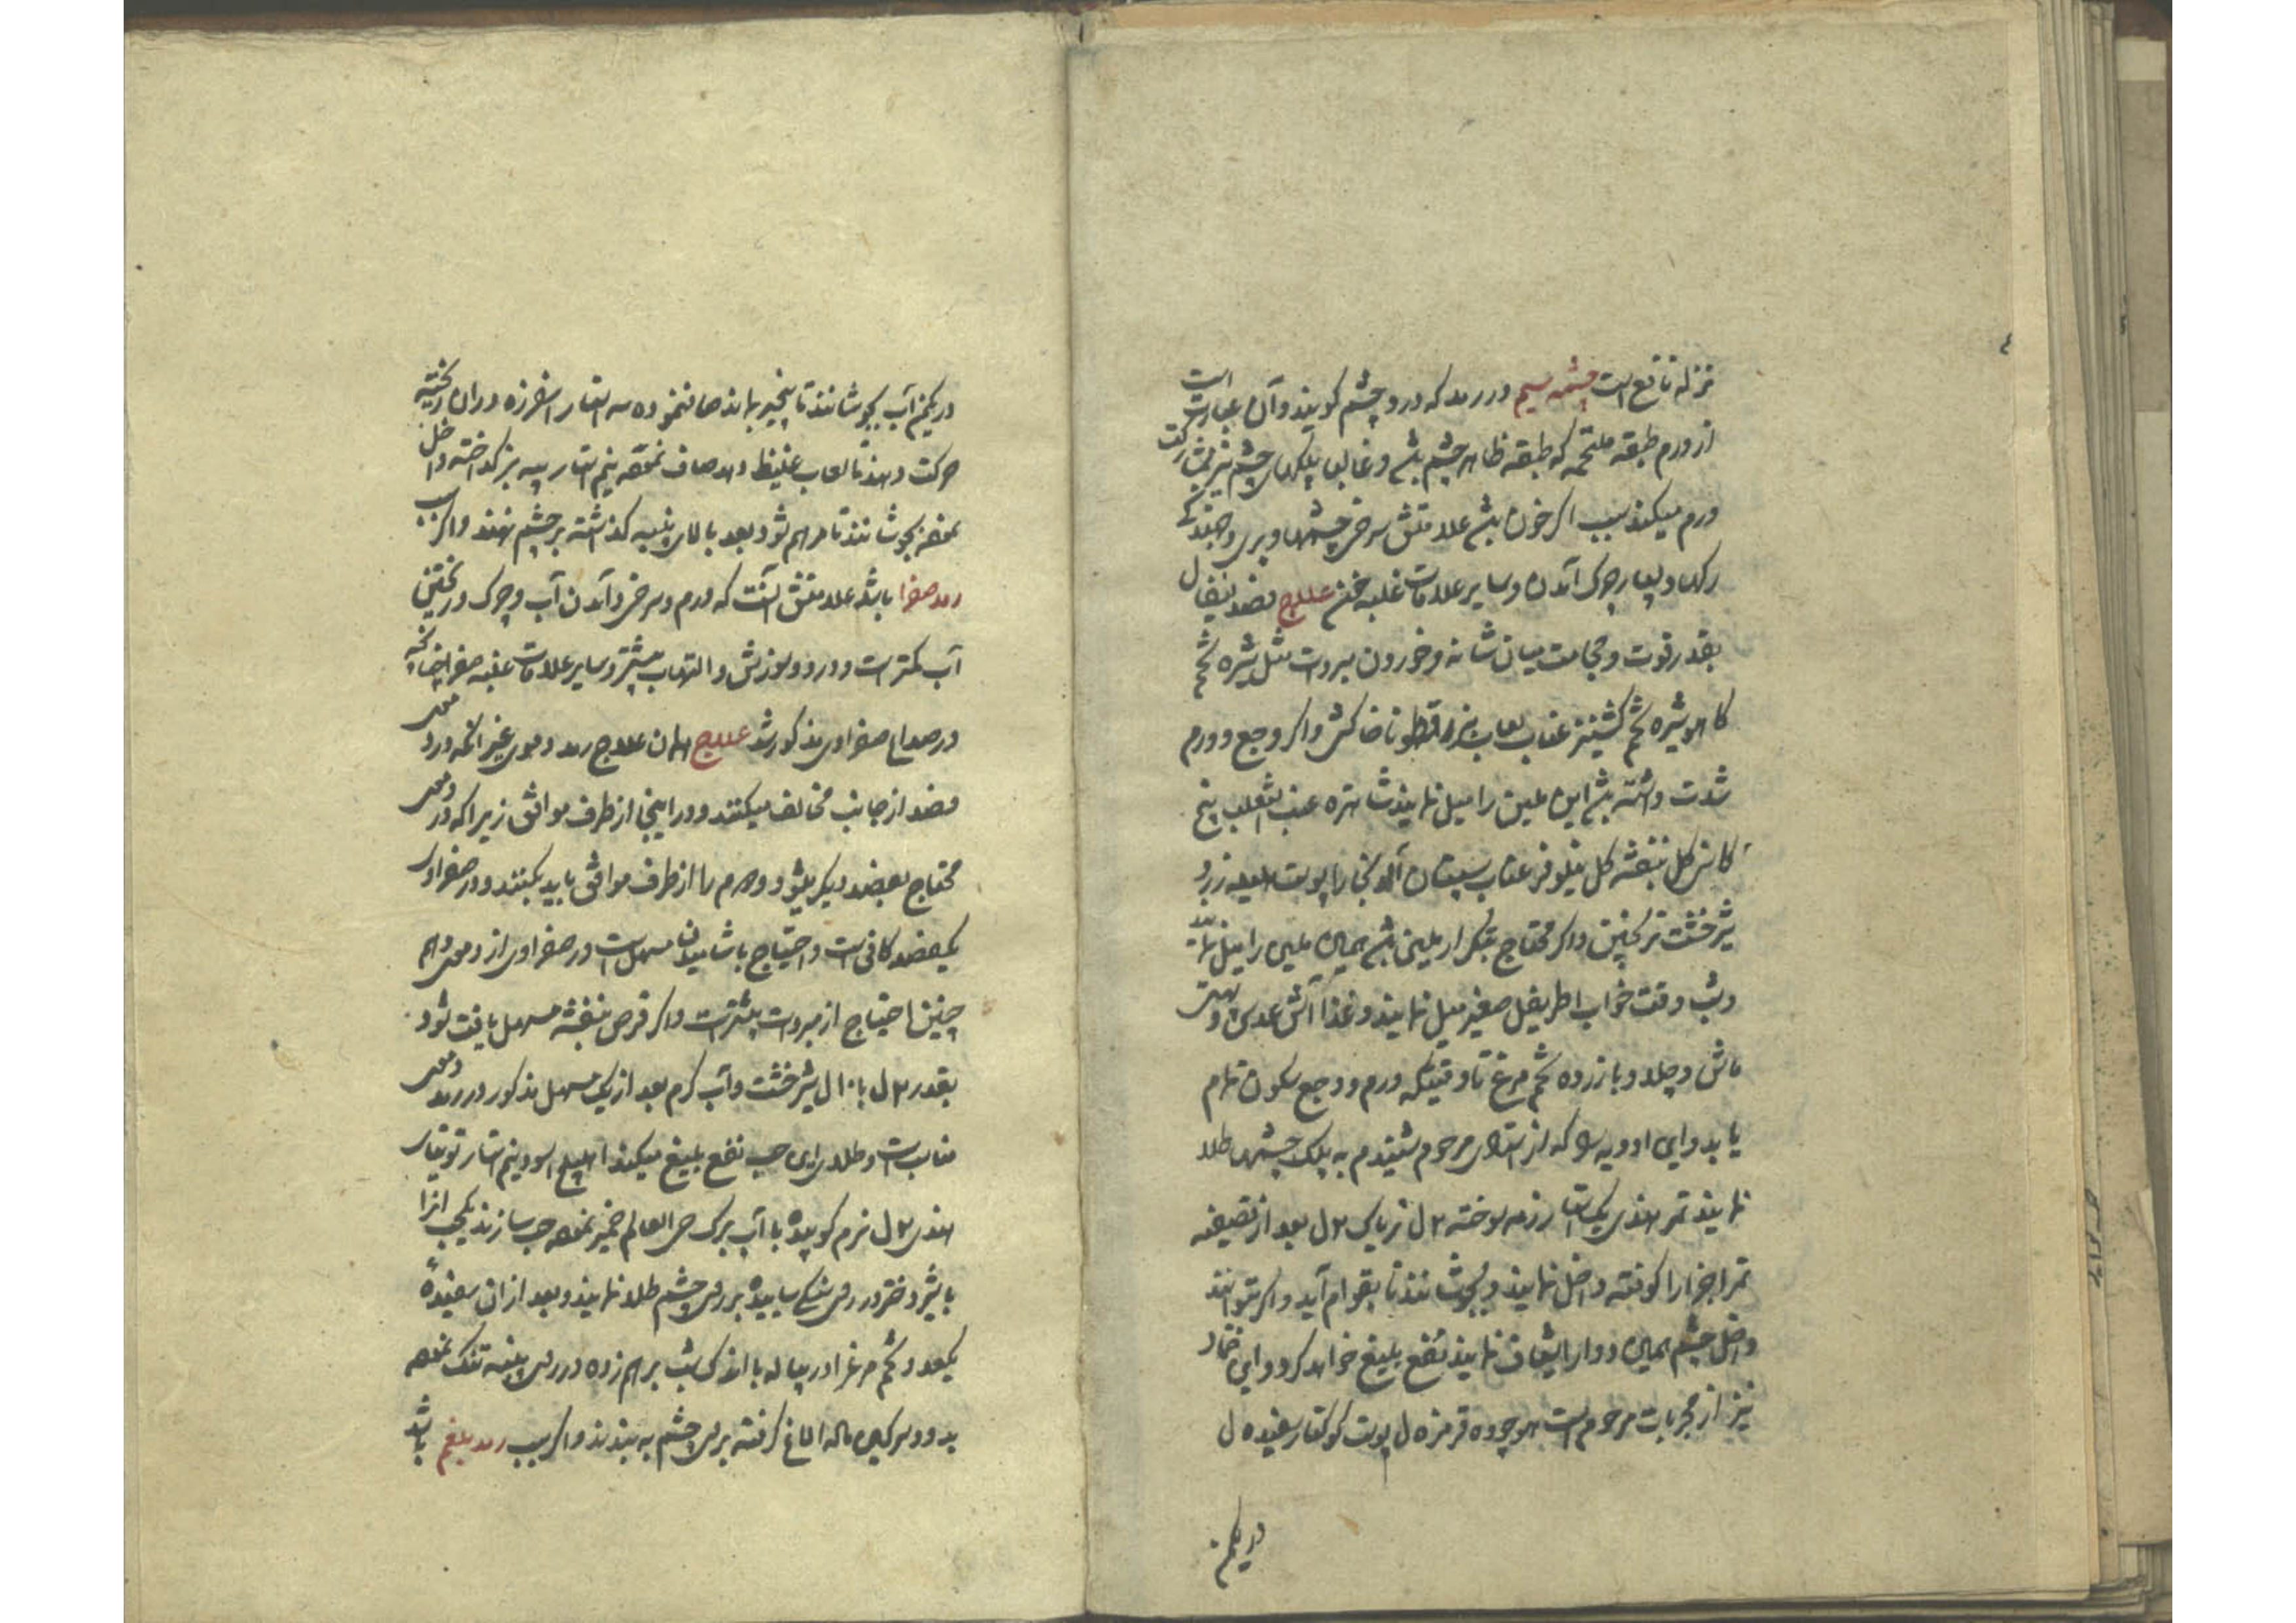 نزله نافع است چشمه سیم در رمد که درد چشم کویند و آن عبارت است
از ورم طبقه ملتحمه که طبقه ظاهر چشم باشد و غالبا پلکهای چشم نیز بمشارکت
ورم میکند سبب اکر خون باشد علامتش سرخی چشمها و پری
رکها و بسیار چرک آمدن و سایر علامات غلبه خون علاج فصد قیفال
بقدر قوت و حجامت میان شانه و خوردن مبردات مثل شیره تخم
کاهو شیره تخم کشنیز عناب لعاب بزرقطونا خاکشی و اکر وجع و ورم
شدت داشته باشد این ملین را میل نمایند شاهتره عنب الثعلب بیخ
کاسنی کل بنفشه کل نیلوفر عناب سپستان آلو بخارا پوست هلیله زرد
شیرخشت ترنجبین و اکر محتاج بتکرار ملین باشد همان ملین را میل نمایند
و شب وقت خواب اطریفل صغیر میل نمایند و غذا آش عدس و
ماش و چلاو با زرده تخم مرغ تا وقتیکه ورم و وجع سکون تمام
یابد و این ادویه را که از استاد مرحوم شنیدم به پلک چشمها طلا
نمایند تمر هندی یک استار زمه سوخته ۲ ل تریاک ۲ ل بعد از تصفیه
تمر اجزا را کوفته داخل نمایند و بجوشانند تا بقوام آید و اکر نتوانند
داخل چشم همین دوا را شیاف نمایند نفع بلیغ خواهد کرد و این ضماد
نیز از مجربات مرحوم است هوچوه قرمزه ل پوست کوکنار سفیده ل
دریکمن
دریکمن آب بجوشانند تا پنجیر بماند صاف نموده سه استار اسفرزه در ان ریخته
حرکت دهند تا لعاب غلیظ دهد صاف نموده نیم استار پیه بز کداخته داخل
نموده بجوشانند تا مرهم شود بعد بالای پنبه کذاشته بر چشم نهند و اکر سبب
رمد صفرا باشد علامتش آنست که ورم و سرخی و آمدن آب و چرک و ریختن
آب کمتر است و درد و سوزش و التهاب بیشتر و سایر علامات غلبه صفرا چنانچه
در صداع صفراوی مذکور شد علاج همان علاج رمد دموی غیر انکه در دموی
فصد از جانب مخالف میکنند و در اینجا از طرف موافق زیرا که در دموی
محتاج بفصد دیکر میشود و دوم را از طرف موافق باید بکنند و در صفراوی
یک فصد کافی است و احتیاج باشامیدن مسهل است در صفراوی از دموی و هم
چنین احتیاج از مبردات بیشتر است و اکر قرص بنفشه مسهل یافت شود
بقدر ۲ ل با ۱۰ ل شیرخشت و آب کرم بعد از یک مسهل مذکور در رمد دموی
مناسب است و طلای این حب نفع بلیغ میکند اهلیلج اسود نیم استار توتیای
هندی ۲ ل نرم کوبیده با آب برک حی العالم خمیر نموده حب سازند یک حب انرا
با شیر دختر در روی سنکی ساییده بر روی چشم طلا نمایند و بعد از ان سفیدهٔ
یکعدد تخم مرغ را در پیاله با اندک شب برهم زده در روی پنبه تنک نموده
بد و سرکین ماله الاغ کرفته بر روی چشم به بندند و اکر سبب رمد بلغم باشد